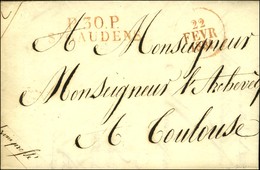 P.30.P.
ST GAUDENS
22
FEVR
A Monseigneur
Monseigneur l'archevêq
A Toulouse